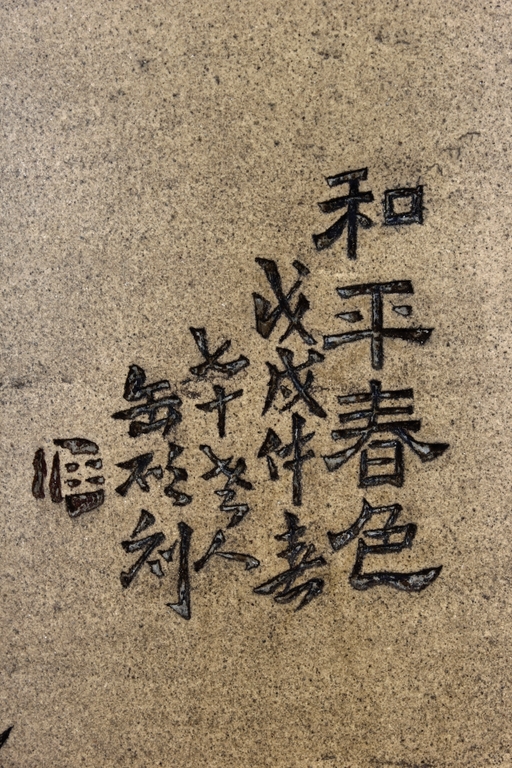 和平春色
戊戌仲春
七十老人